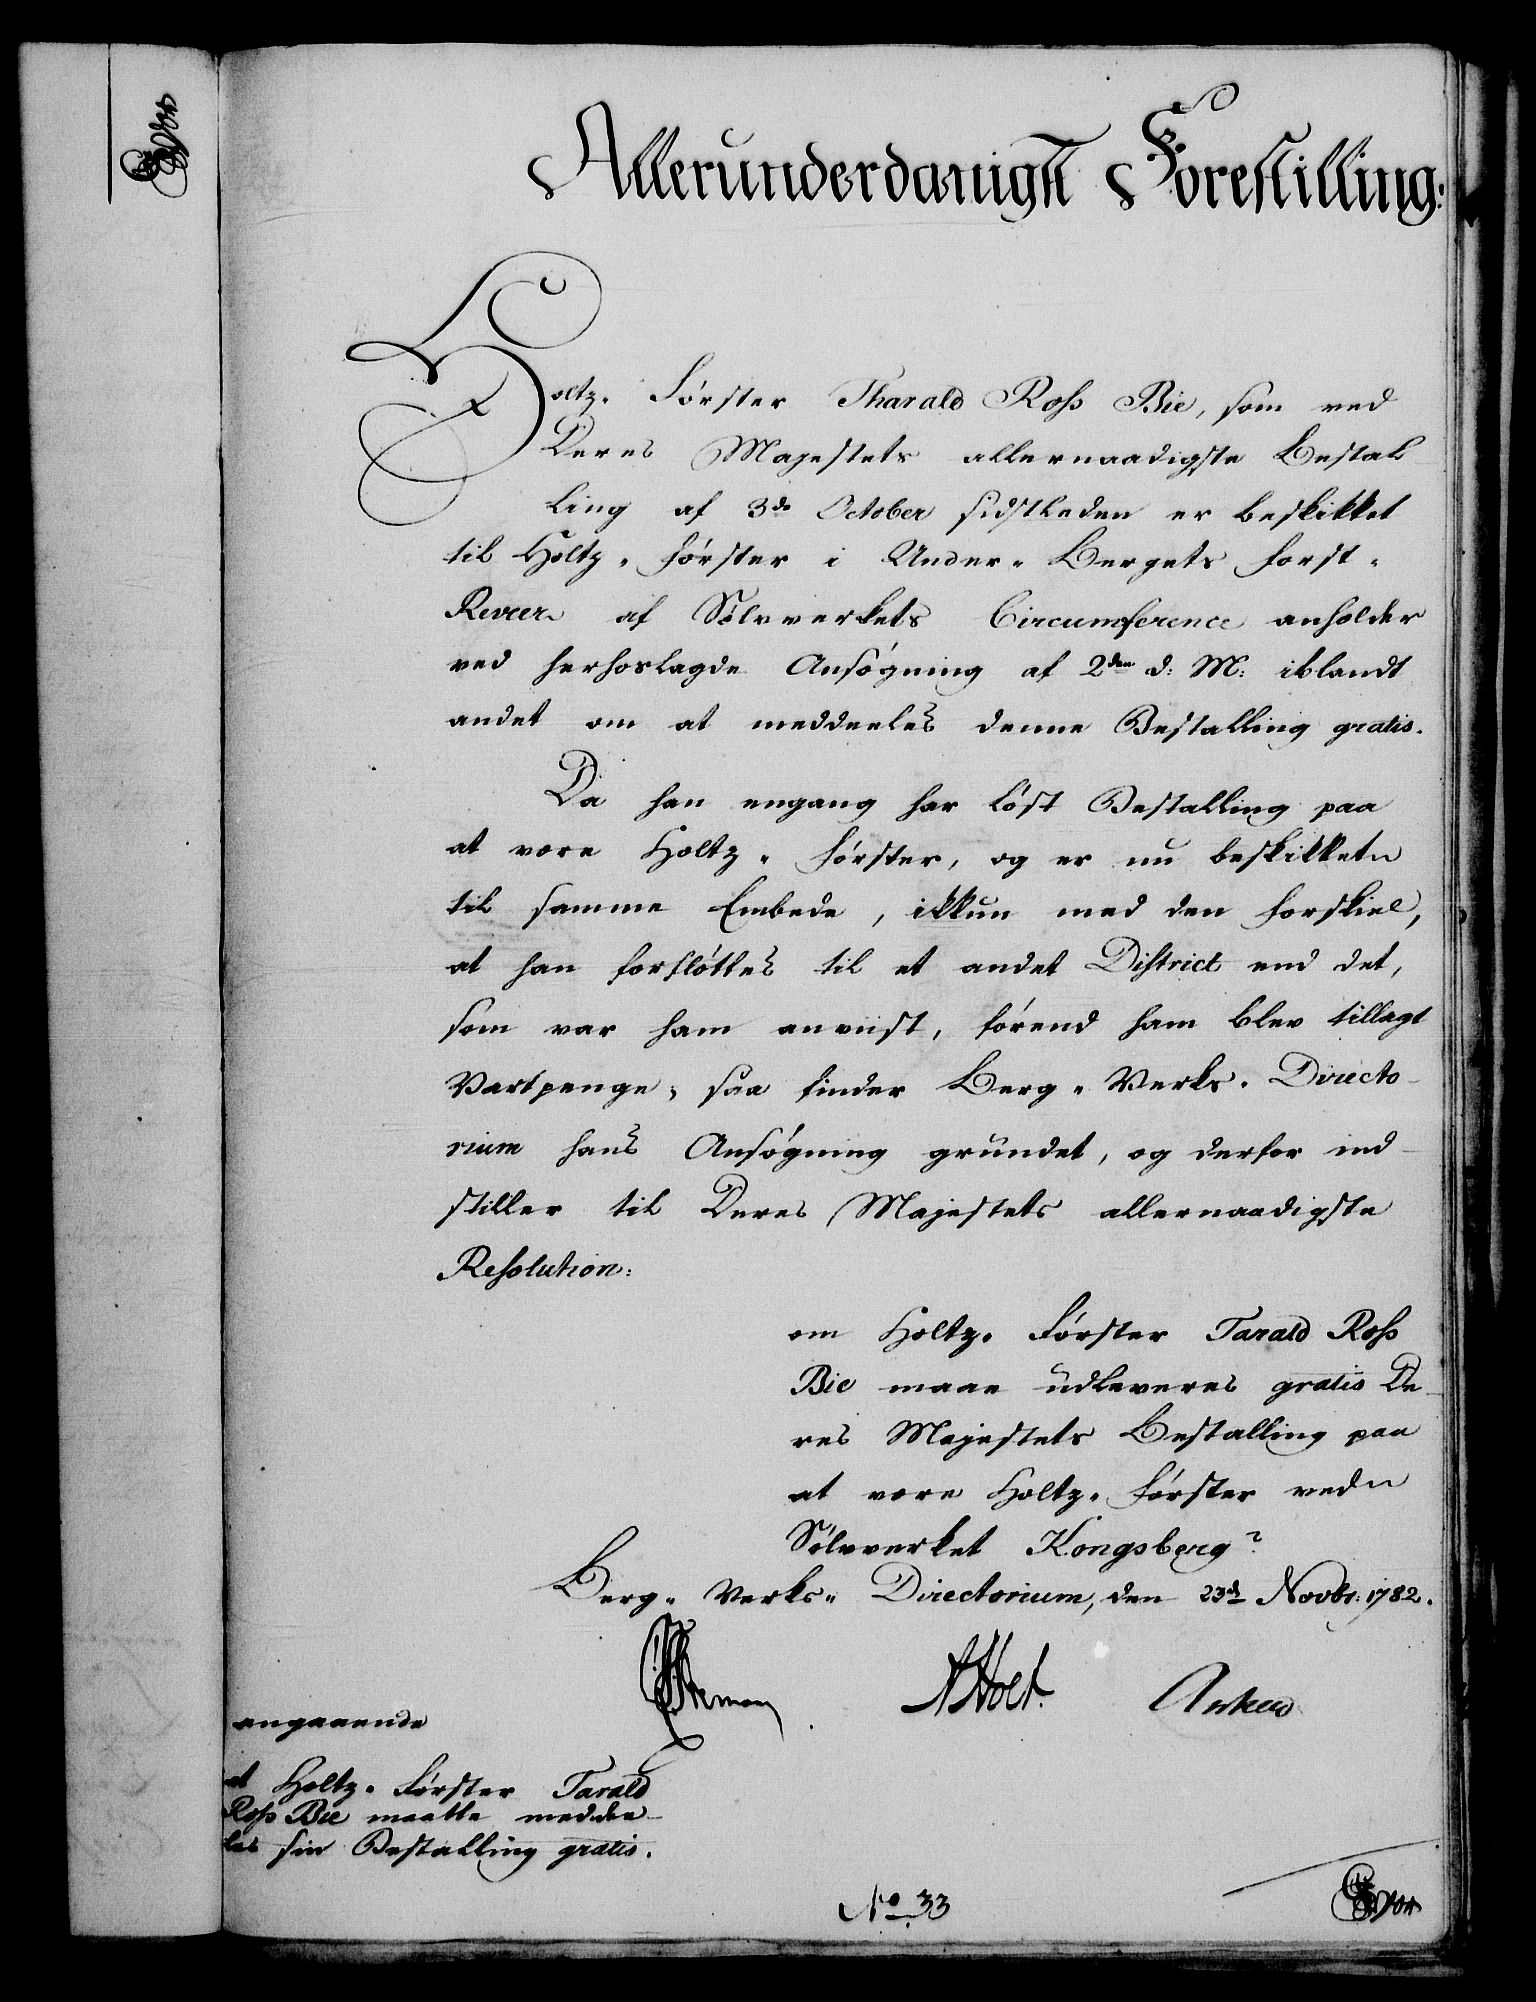 Allerunderdanigst Forestilling:
Holtz-Förster Tharald Ross Bie, som ved
Deres Majestets allernaadigste Bestal
ling af 3de October sidstleden er beskikket
til Holtz-Förster i Under-Bergets Forst-
Revier af Sölvverkets Circumference anholder
ved herhoslagde Ansögning af 2den d: M: iblandt
andet om at meddeeles denne Bestalling gratis.
Da han engang har löst Bestalling paa
at være Holtz-Förster, og er nu beskikket
til samme Embede, ikkun med den Forskiel,
at han forflöttes til et andet District end det,
som var ham anviist, förend ham blev tillagt
Vartpenge; saa finder Berg-Verks-Directo-
rium hans Ansögning grundet, og derfor ind-
stiller til Deres Majestets allernaadigste
Resolution:
om Holtz-Förster Tarald Ross
Bie maae udleveres gratis De-
res Majestets Bestalling paa
at være Holtz-Förster ved
Sölvverket Kongsberg?
Berg-Verks-Directorium, den 23d Novbr: 1782.
AHolt. Anker
angaaende
at Holtz-Förster Tarald
Ross Bie maatte meddee-
les sin Bestalling gratis.
No. 33